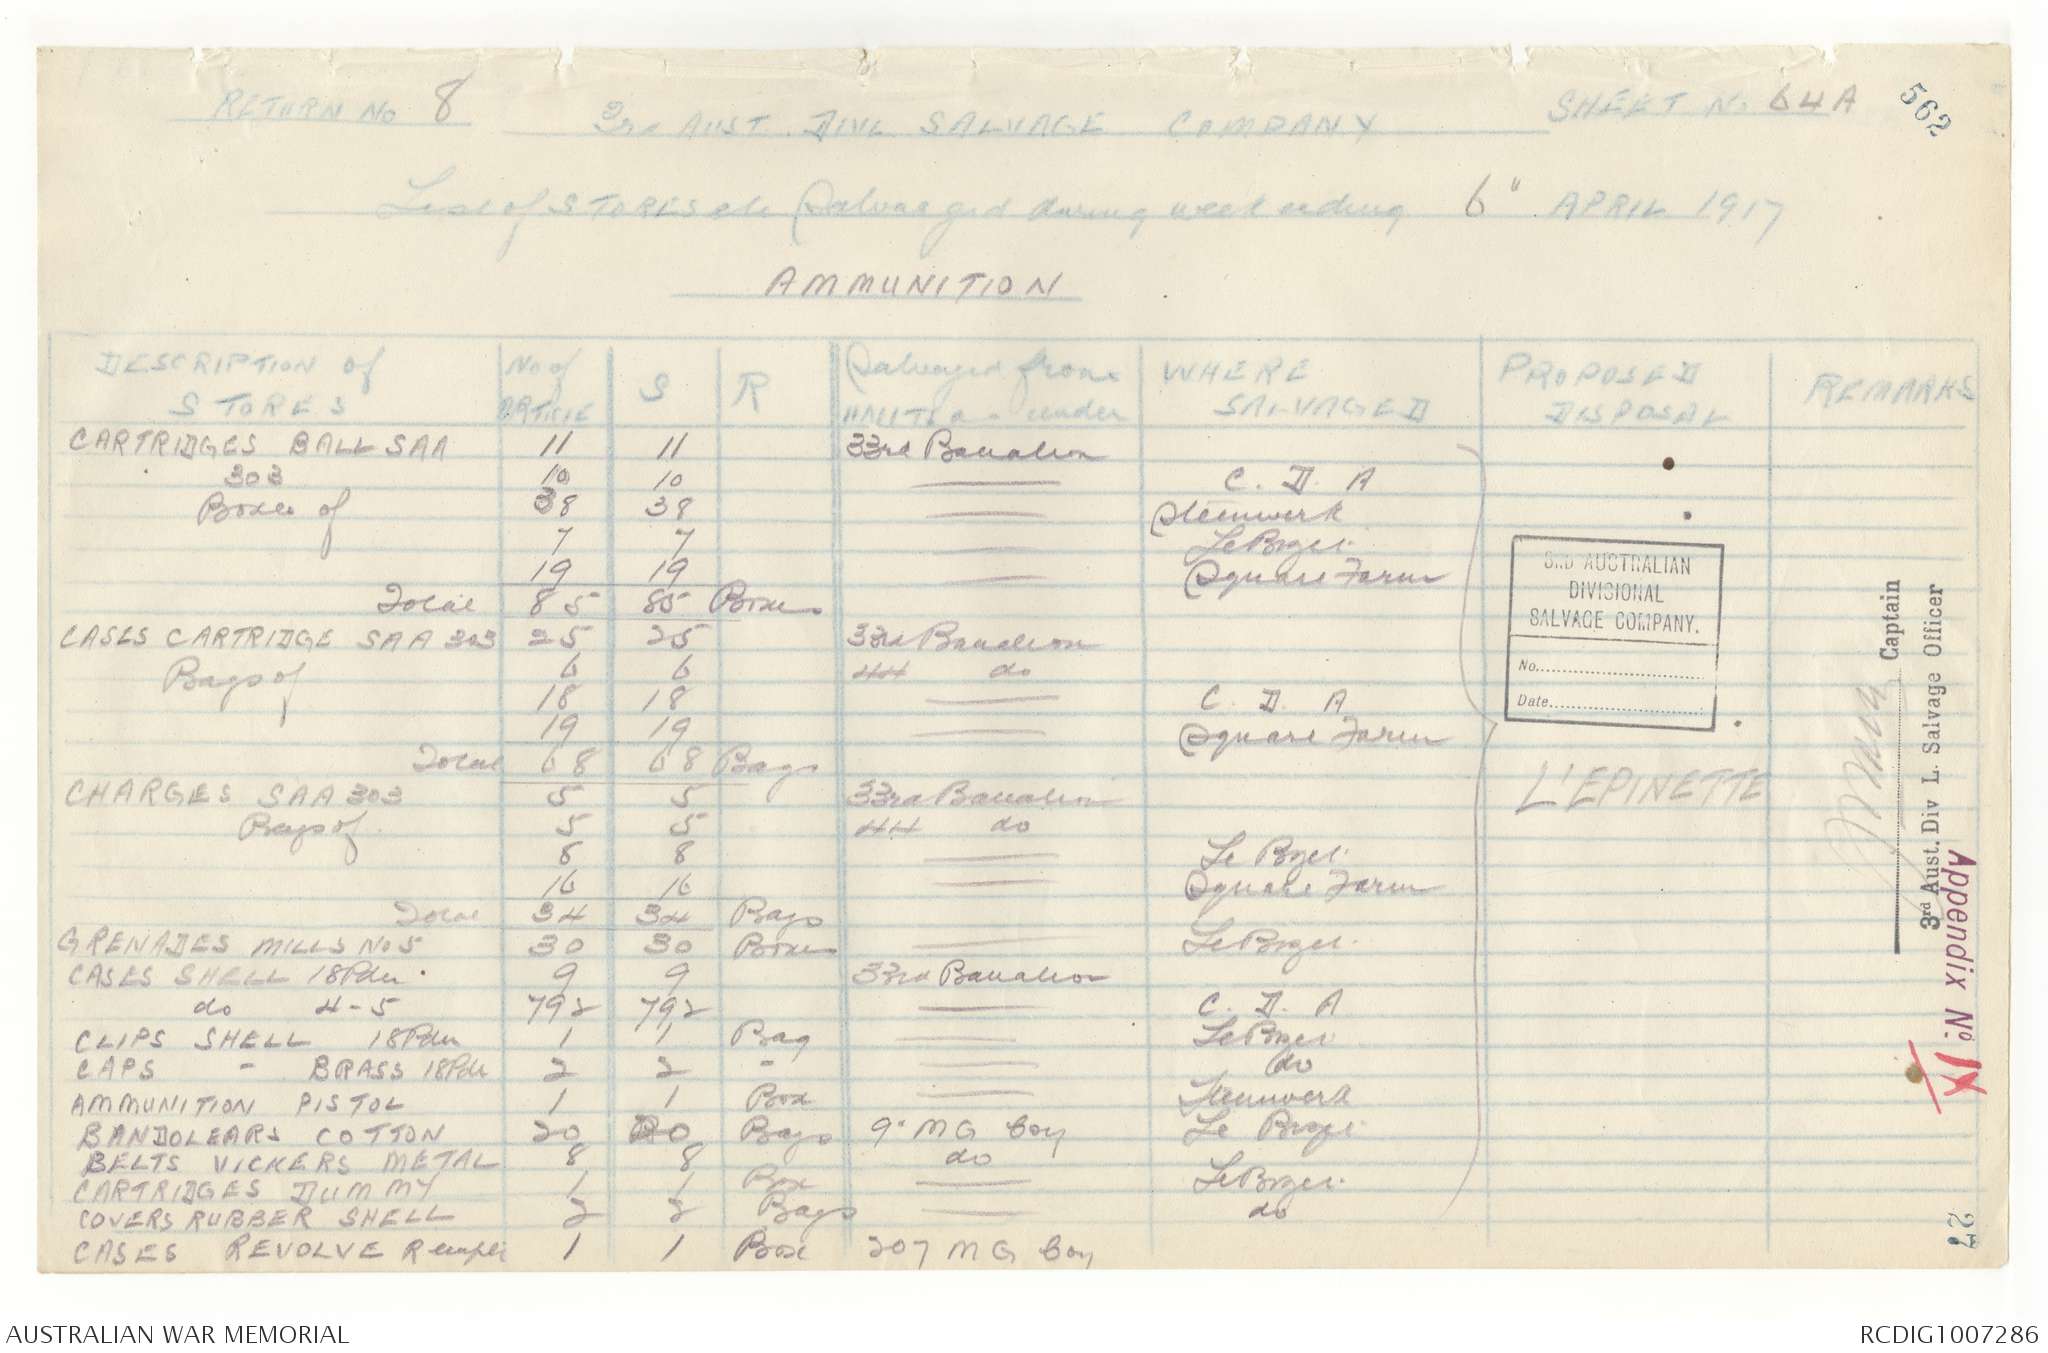 RETURN No 8 3rd AUST. DIVL SALVAGE COMPANY SHEET No 64A
562
List of STORES etc Salvaged during week ending 6" APRIL 1917
AMMUNITION
DESCRIPTION of STORES No of ARTICLE S R Salvaged from UNITS as under WHERE SALVAGED PROPOSED DISPOSAL REMARKS
CARTRIDGES BALL SAA 11 11 33rd Battalion
303 10 10 — C. D. A
Boxes of 38 38 — Steenwerk
7 7 — Le Bizet
19 19 — Square Farm
Total 85 85 Boxes
CASES CARTRIDGE SAA 303 25 25 33rd Battalion
Bags of 6 6 44 do
18 18 — C. D. A
19 19 Square Farm
Total 68 68 Bags
CHARGES SAA 303 5 5 33rd Battalion
Bags of 5 5 44 do
8 8 — Le Bizet
16 16 — Square Farm
Total 34 34 Bags
GRENADES MILLS No 5 30 30 Boxes — Le Bizet
CASES SHELL 18Pdr 9 9 33rd Battalion
do 4-5 792 792 — C. D. A
CLIPS SHELL 18Pdr 1 1 Bag — Le Bizet
CAPS - BRASS 18Pdr 2 2 - — do
AMMUNITION PISTOL 1 1 Box — Steenwerk
BANDOLEARS COTTON 20 20 Bags 9" M G Coy Le Bizet
BELTS VICKERS METAL 8 8 do
CARTRIDGES DUMMY 1 1 Box — Le Bizet
COVERS RUBBER SHELL 2 2 Bags — do
CASES REVOLVE 1 1 Box 207 M G Coy
L'EPINETTE
3RD AUSTRALIAN
DIVISIONAL
SALVAGE COMPANY.
No.
Date
Captain
3rd Aust. Div L. Salvage Officer
Appendix No. IX
27
AUSTRALIAN WAR MEMORIAL
RCDIG1007286